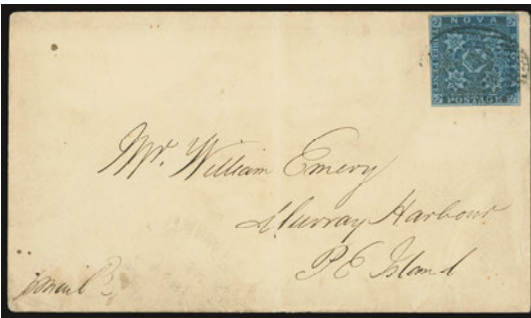 NOVA
POSTAGE
Mr. William Emery
Murray Harbour
P E Island